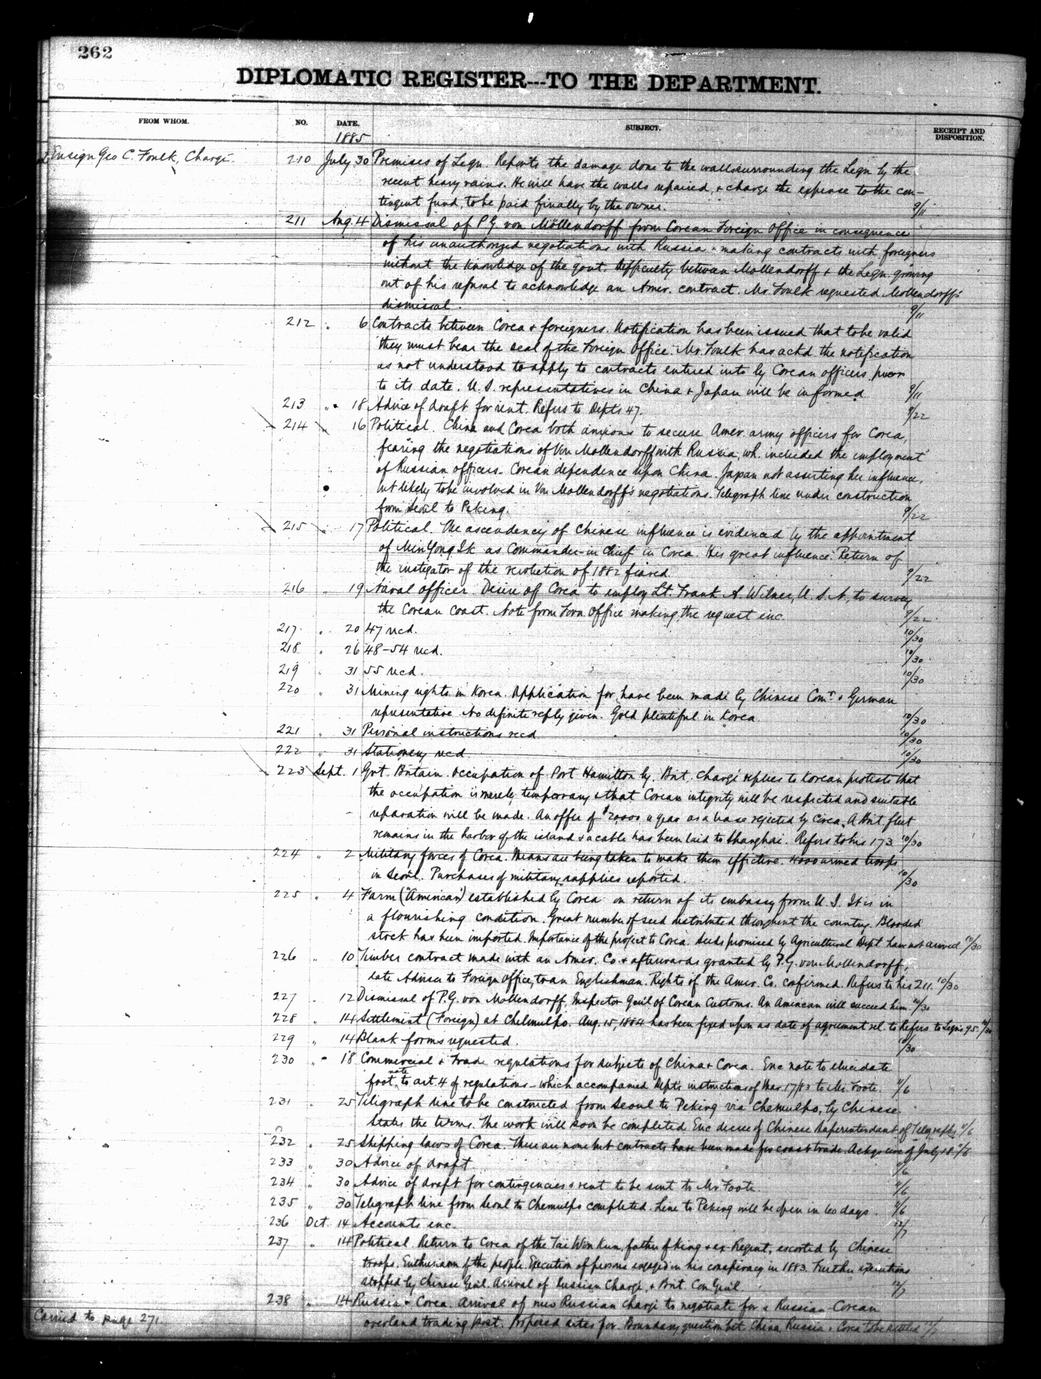 262
DIPLOMATIC REGISTER---TO THE DEPARTMENT.
FROM WHOM. NO. DATE. SUBJECT. RECEIPT AND DISPOSITION.
1885
Ensign Geo C. Foulk, Chargé. 210 July 30 Premises of Legn. Reports the damage done to the walls surrounding the Legn by the
recent heavy rains. He will have the walls repaired, & charge the expense to the con-
tingent fund, to be paid finally by the owner. 9/11
211 Aug. 4 Dismissal of P. G. von Mollendorff from Corean Foreign Office in consequence
of his unauthorized negotiations with Russia & making contracts with foreigners
without the knowledge of the govt. Difficulty between Mollendorff & the Legn. growing
out of his refusal to acknowledge an Amer. contract. Mr. Foulk requested Mollendorff's
dismissal. 9/11
212 " 6 Contracts between Corea & foreigners. Notification has been issued that to be valid
they must bear the seal of the Foreign Office. Mr. Foulk has ackd the notification
as not understood to apply to contracts entered into by Corean officers prior
to its date. U. S. representatives in China & Japan will be informed. 9/11
213 " 18 Advice of draft for rent. Refers to Depts 47. 9/22
214 " 16 Political. China and Corea both anxious to secure Amer. army officers for Corea,
fearing the negotiations of Von Mollendorff with Russia, wh. included the employment
of Russian officers. Corean dependence upon China. Japan not asserting her influence,
but likely to be involved in Von Mollendorff's negotiations. Telegraph line under construction
from Seoul to Peking. 9/22
215 " 17 Political. The ascendency of Chinese influence is evidenced by the appointment
of Min Yong Ik as Commander-in Chief in Corea. His great influence. Return of
the instigator of the revolution of 1882 feared. 9/22
216 " 19 Naval officer. Desire of Corea to employ Lt. Frank A. Wilner, U. S. N., to survey
the Corean coast. Note from Forn. Office making the request inc. 9/22
217 " 20 47 recd. 10/30
218 " 26 48-54 recd. 10/30
219 " 31 55 recd. 10/30
220 " 31 Mining rights in Korea. Application for, have been made by Chinese Comr. & German
representative. No definite reply given. Gold plentiful in Korea. 10/30
221 " 31 Personal instructions recd 10/30
222 " 31 Stationery recd 10/30
223 Sept. 1 Grt. Britain. Occupation of Port Hamilton by. Brit. Chargé replies to Korean protests that
the occupation is merely temporary & that Corean integrity will be respected and suitable
reparation will be made. An offer of $2000 a year as a base rejected by Corea. A Brit fleet
remains in the harbor of the island & a cable has been laid to Shanghai. Refers to his 173. 10/30
224 " 2 Military forces of Corea. Means are being taken to make them effective. 4000 armed troops
in Seoul. Purchases of military supplies reported. 10/30
225 " 4 Farm ("American") established by Corea on return of its embassy from U. S. It is in
a flourishing condition. Great number of seed distributed throughout the country. Blooded
stock has been imported. Importance of the project to Corea. Seeds promised by Agricultural Dept have not arrived 10/30
226 " 10 Timber contract made with an Amer. Co. & afterwards granted by P. G. von Mollendorff,
late Adviser to Foreign Office, to an Englishman. Rights of the Amer. Co. confirmed. Refers to his 211. 10/30
227 " 12 Dismissal of P. G. von Mollendorff, Inspector Genl of Corean Customs. An American will succeed him. 10/30
228 " 14 Settlement (Foreign) at Chelmulpo. Aug. 15, 1884 has been fixed upon as date of agreement rel. to. Refers to Legn's 95. 10/30
229 " 14 Blank forms requested. 10/30
230 " 18 Commercial & Trade regulations for subjects of China & Corea. Enc note to elucidate
foot note to art. 4 of regulations - which accompanied Depts instructions of Mar. 17/83 to Mr. Foote. 11/6
231 " 25 Telegraph line to be constructed from Seoul to Peking via Chemulpo, by Chinese.
States the terms. The work will soon be completed. Enc desire of Chinese Superintendant of Telegraphs 11/6
232 " 25 Shipping laws of Corea. There are none but contracts have been made for coast trade. Acks circ of July 18. 11/6
233 " 30 Advice of draft 11/6
234 " 30 Advice of draft for contingencies & rent to be sent to Mr Foote. 11/6
235 " 30 Telegraph line from Seoul to Chemulpo completed. Line to Peking will be open in 60 days. 11/6
236 Oct. 14 Accounts inc. 12/7
237 " 14 Political. Return to Corea of the Tai Won Kun, father of king & ex-Regent, escorted by Chinese
troops. Enthusiasm of the people. Execution of persons engaged in his conspiracy in 1883. Further executions
stopped by Chinese Genl. Arrival of Russian Chargé & Brit. Con Genl. 12/7
238 " 14 Russia & Corea. Arrival of new Russian Chargé to negotiate for a Russian-Corean
overland trading post. Proposed sites for. Boundary question bet. China, Russia & Corea to be settled 12/7
Carried to page 271.